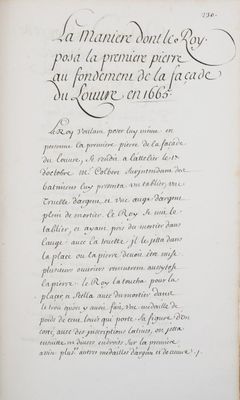 230.
La Maniere dont le Roy
posa la premiere pierre
au fondement de la façade
du Louvre en 1665.
Le Roy voulant poser luy mesme en
personne la premiere pierre de la façade
du Louvre, se rendit a l'attelier le 17
d'octobre Mr Colbert Surjntendant des
batimens luy presenta un tablier, une
Truelle d'argent, et une auge d'argent
plein de mortier. Le Roy se mit le
tablier, et ayant pris du mortier dans
l'auge avec la truelle jl le jetta dans
la place ou la pierre devoit être mise
plusieurs ouvriers remuerent aussytost
la pierre. Le Roy la toucha pour la
placer
avec du mortier dans
le trou qu'on y avoit fait, une medaille de
poids de cent Louis qui porte sa figure d'un
costé, avec des jnscriptions Latines, on jetta
ensuite en divers endroits sur la premiere
assise plusrs autres medailles d'argent et de cuivre .